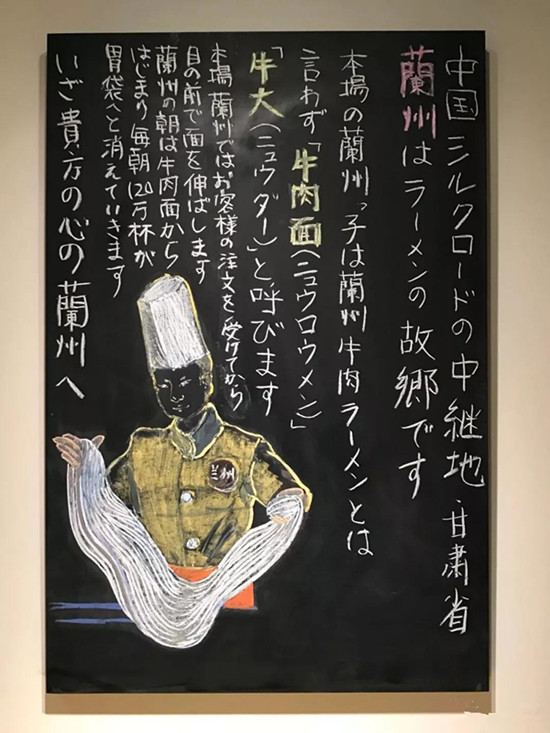 中国シルクロードの中継地 甘粛省
蘭州はラーメンの故郷です
本場の蘭州っ子は蘭州牛肉ラーメンとは
言わず「牛肉面(ニュウロウメン)」
「牛大(ニュウダー)」と呼びます
本場 蘭州ではお客様の注文を受けてから
目の前で面を伸ばします
蘭州の朝は牛肉面から
はじまり 毎朝120万杯が
胃袋へと消えていきます
いざ貴方の心の蘭州へ
兰州